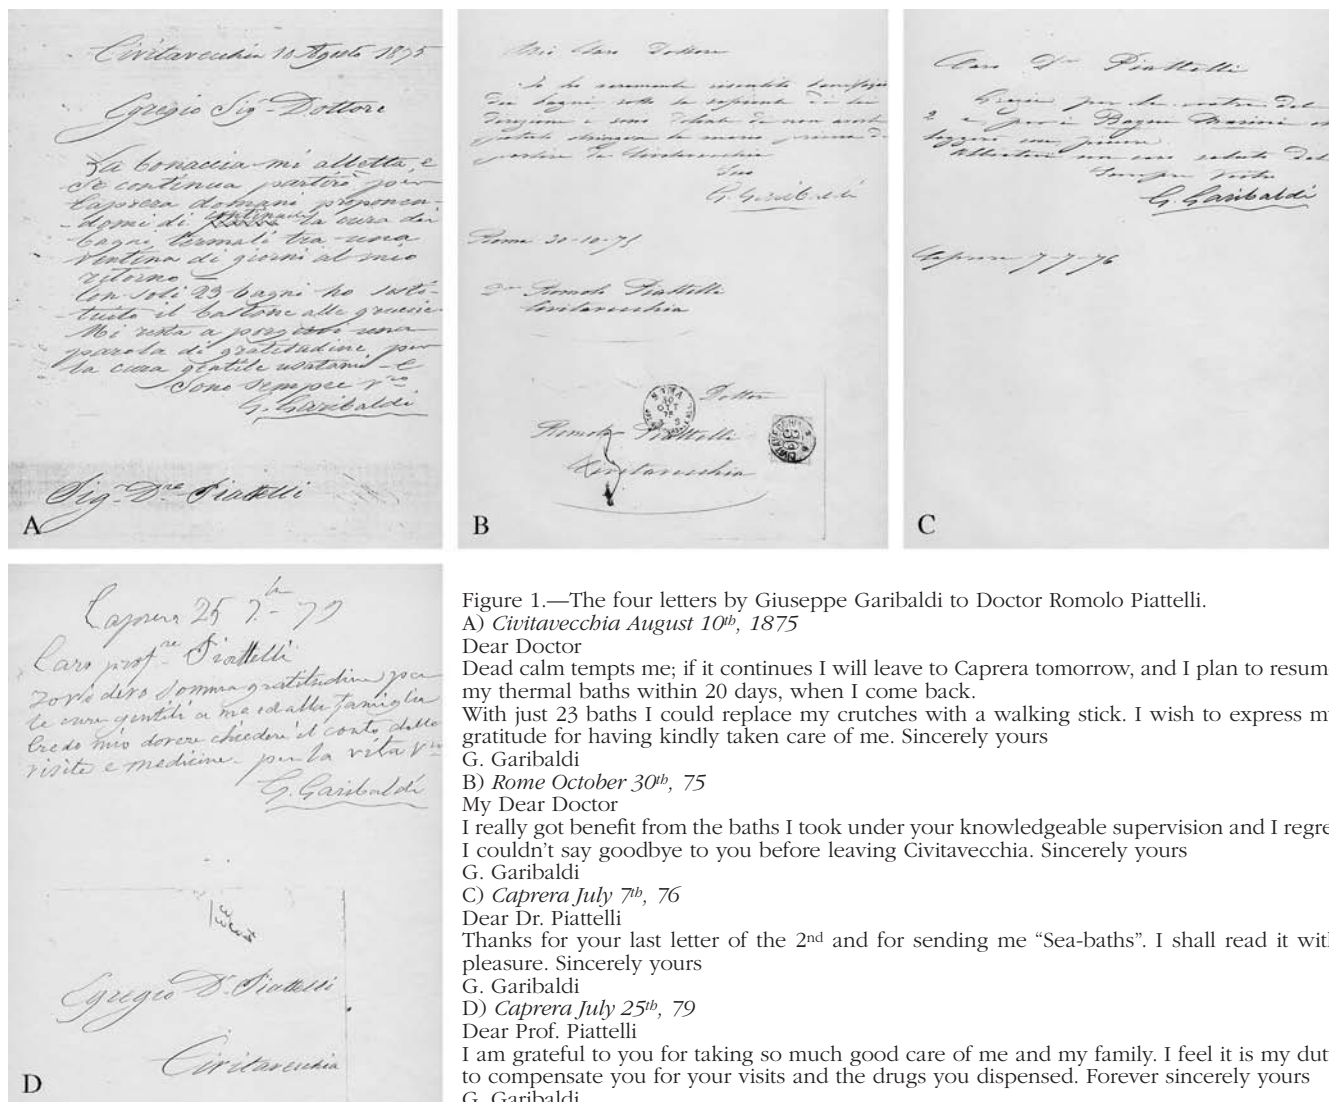 Civitavecchia 10 Agosto 1875
Egregio Sig. Dottore
La bonaccia mi alletta, e
se continua partirò per
Caprera domani proponen-
-domi di continuare la cura dei
bagni termali tra una
ventina di giorni al mio
ritorno —
Con soli 23 bagni ho sosti-
tuito il bastone alle gruccie
Mi resta a porgervi una
parola di gratitudine per
la cura gentile usatami — e
sono sempre vro
G. Garibaldi
Sigr. Dre Piattelli
A
Mio Caro Dottore
Io ho veramente risentito
dei bagni sotto la sapiente di lei
direzione e sono dolente di non
potuto stringere la mano prima di
partire da Civitavecchia
Suo
G. Garibaldi
Roma 30-10-75
Dre Romolo Piattelli
Civitavecchia
Dottor
Romolo Piattelli
Civitavecchia
B
Caro Dr Piattelli
Grazie per la vostra del
2 e per i Bagni Marini
sempre vostro
G. Garibaldi
Caprera 7-7-76
C
Caprera 25 7 - 79
Caro profre Piattelli
devo somma gratitudine per
le cure gentili a me ed alla famiglia
Credo mio dovere chiedere il conto delle
visite e medicine - per la vita vro
G. Garibaldi
Egregio Dr Piattelli
Civitavecchia
D
Figure 1.—The four letters by Giuseppe Garibaldi to Doctor Romolo Piattelli.
A) Civitavecchia August 10th, 1875
Dear Doctor
Dead calm tempts me; if it continues I will leave to Caprera tomorrow, and I plan to resum
my thermal baths within 20 days, when I come back.
With just 23 baths I could replace my crutches with a walking stick. I wish to express m
gratitude for having kindly taken care of me. Sincerely yours
G. Garibaldi
B) Rome October 30th, 75
My Dear Doctor
I really got benefit from the baths I took under your knowledgeable supervision and I regre
I couldn't say goodbye to you before leaving Civitavecchia. Sincerely yours
G. Garibaldi
C) Caprera July 7th, 76
Dear Dr. Piattelli
Thanks for your last letter of the 2nd and for sending me “Sea-baths”. I shall read it wit
pleasure. Sincerely yours
G. Garibaldi
D) Caprera July 25th, 79
Dear Prof. Piattelli
I am grateful to you for taking so much good care of me and my family. I feel it is my dut
to compensate you for your visits and the drugs you dispensed. Forever sincerely yours
G. Garibaldi